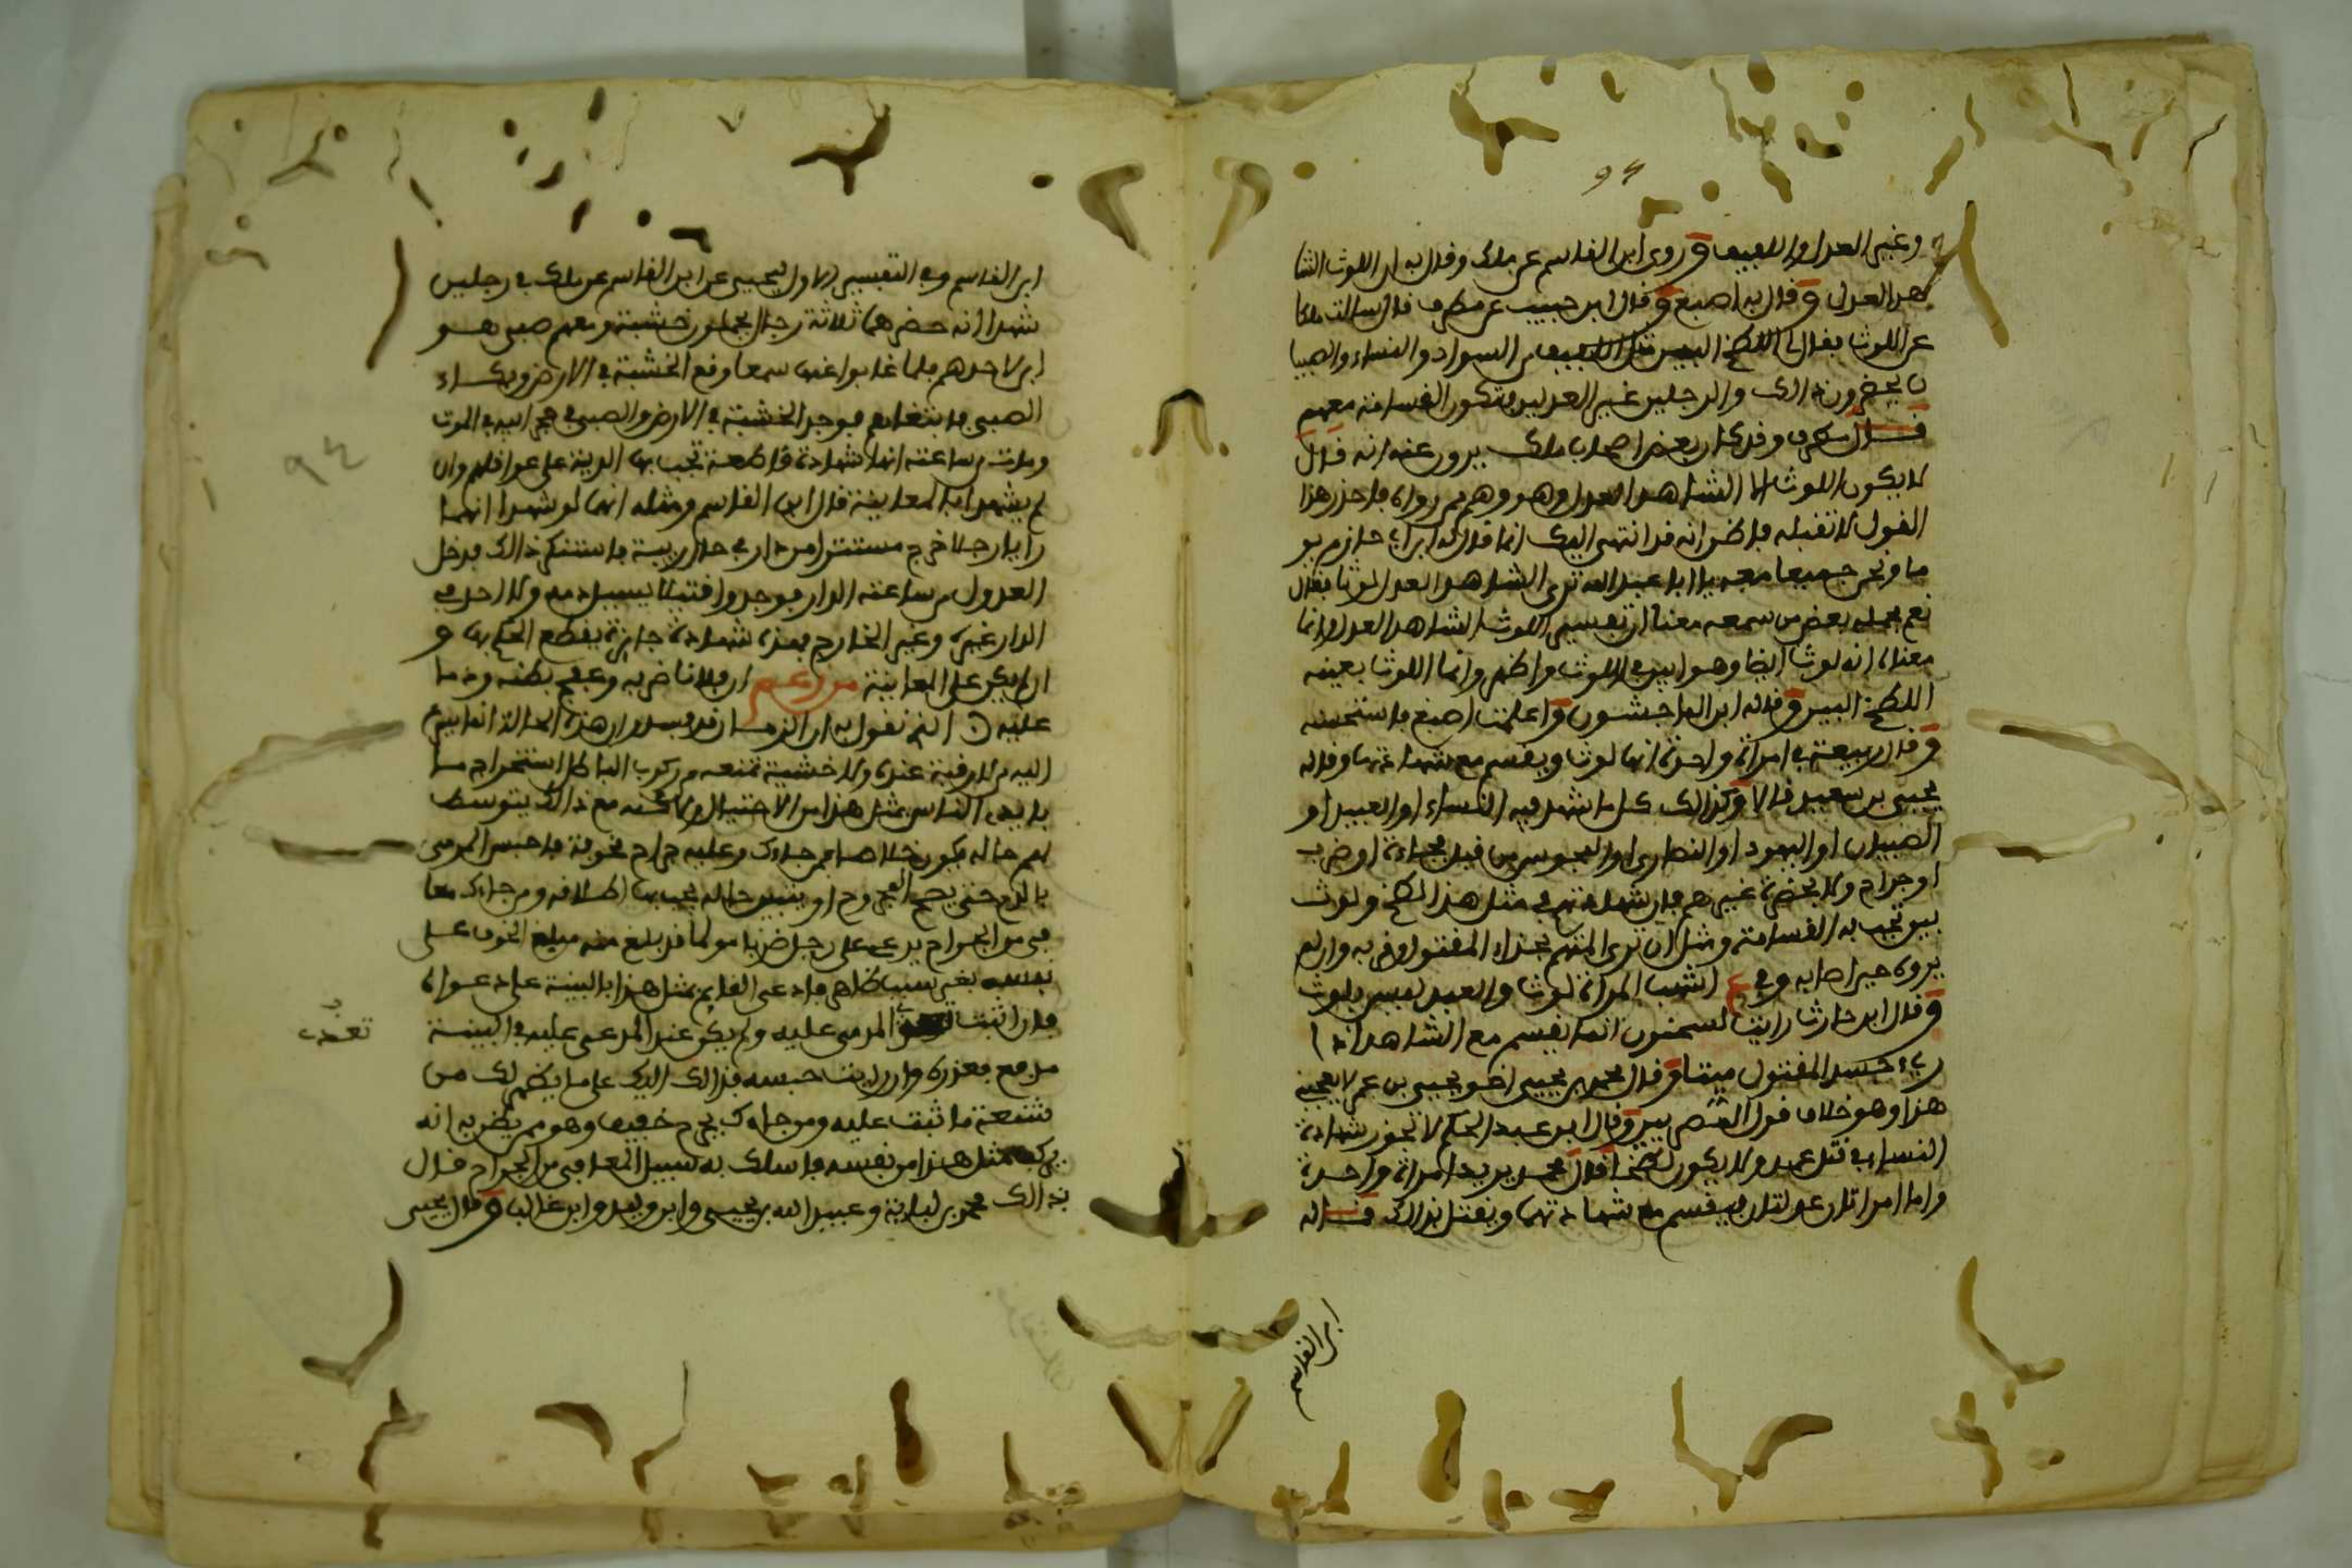 94
وغير العدل واللفيف وروى ابن القاسم عن ملك وقال به ان اللوث الشا
هد العدل وقال به اصبغ وقال ابن حبيب عن مطرف قال سالت ملكا
عن اللوث فقال لي اللطخ البين مثل اللفيف من السواد والنساء والصبيا
ن يحضرون ذالك والرجلين غير العدلين فتكون القسامة معهم
قال مطرف وقد كان بعض اصحاب ملك يروون عنه انه قال
لا يكون اللوث الا الشاهد العدل وهو وهم ممن رواه فاحذر هذا
القول لا تقبله فاظن انه قد انتهى اليك انما قال له ابن ابي حازم يو
ما ونحن جميعا معه يا ابا عبد الله ترى الشاهد العدل لوثا فقال
نعم فحمله بعض من سمعه معنا ان تفسير اللوث الشاهد العدل وانما
معناه انه لوث ايضا وهو ابين في اللوث واظهر وانما اللوث بعينه
اللطخ البين وقاله ابن الماجشون واعلمت اصبغ فاستحسنه
وقال ربيعة في امراة واحدة انها لوث ويقسم مع شهادتها وقاله
يحيى بن سعيد قالا وكذالك كل ما شهد فيه النساء او العبيد او
الصبيان او اليهود او النصارى او المجوس من قتل فجاءة او ضرب
او جراح ولا يحضره غيرهم فان شهادتهم في مثل هذا لطخ ولوث
بين تجب به القسامة ومثل ان يرى المتهم بحذاء المقتول او قربه وان لم
يروه حين اصابه وفي ع اشهب المراة لوث والعبد ليس بلوث
وقال ابن حارث رايت لسحنون انما يقسم مع الشاهد اذا
رىء جسد المقتول ميتا وقال محمد بن يحيى اخو يحيى بن عمر لا يعجبني
هذا وهو خلاف قول المصريين وقال ابن عبد الحكم لا تجوز شهادة
النساء في قتل عمد ولا يكون لطخا قال محمد يريد امراة واحدة
واما امراتان عدلتان فيقسم مع شهادتهما ويقتل بذالك قاله
ابن القاسم
ابن القاسم وفي التفسير الاول ليحيى عن ابن القاسم عن ملك في رجلين
شهدا انه حضرهما ثلاثة رجال يحملون خشبة ومعهم صبي هو
ابن لاحدهم فلما غابوا عنهما سمعا وقع الخشبة في الارض وبكاء
الصبي فاتبعاهم فوجدا الخشبة في الارض والصبي في حجر ابيه في الموت
ومات من ساعته انها شهادة قاطعة تجب بها الدية على عواقلهم وان
لم يشهدا بالمعاينة قال ابن القاسم ومثله انهما لو شهدا انهما
رايا رجلا خرج مستترا من دار في حال ريبة فاستنكر ذالك فدخل
العدول من ساعته الدار فوجدوا قتيلا يسيل دمه ولا احد في
الدار غيره وغير الخارج فهذه شهادة جايزة يقطع الحكم بها و
ان لم يكن على المعاينة من زعم ان فلانا ضربه وعفج بطنه وندما
عليه الذي نقول به ان الزمان قد فسد وان هذه الحالة انما يدعو
اليه من لا رقبة عنده ولا خشية تمنعه من ركوب الباطل استخراج ما
بايدي الناس بمثل هذا من الاحتيال ولكنه مع ذالك يتوسط
لهم حاله يكون خلاصا فمن جاءك وعليه جراح مخوفة فاحبس المرمى
بالدم حتى يصح المجروح او يتبين حاله يجب بها اطلاقه ومن جاءك معا
فى من الجراح يدعي على رجل ضربا مولما قد بلغ منه مبلغ الخوف على
نفسه بغير سبب ظاهر فادع القايم بمثل هذا بالبينة على دعواه
فان اثبت المرمى عليه ولم يكن عند المدعى عليه في البينة
تعدي
مدفع فعزره وان رايت حبسه فذالك اليك على ما يظهر لك من
شنعة ما ثبت عليه ومن جاءك بجرح خفيف وهو ممن يظن به انه
يركب مثل هذا من نفسه فاسلك به سبيل المعافى من الجراح قال
بذالك محمد بن لبابة وعبيد الله بن يحيى وابن وليد وابن غالب وقال يحيى
٩٤